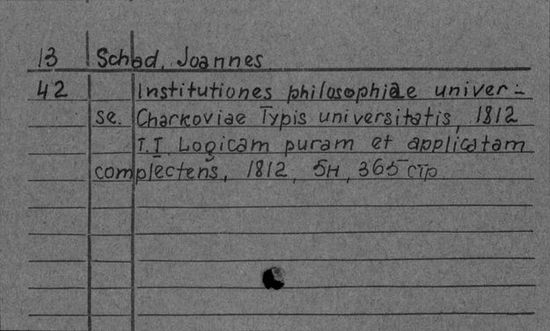 13 Schad, Joannes
42 Institutiones philosophiae univer-
se. Charkoviae Typis universitatis, 1812
T.I Logicam puram et applicatam
complectens, 1812, 5н, 365 стр